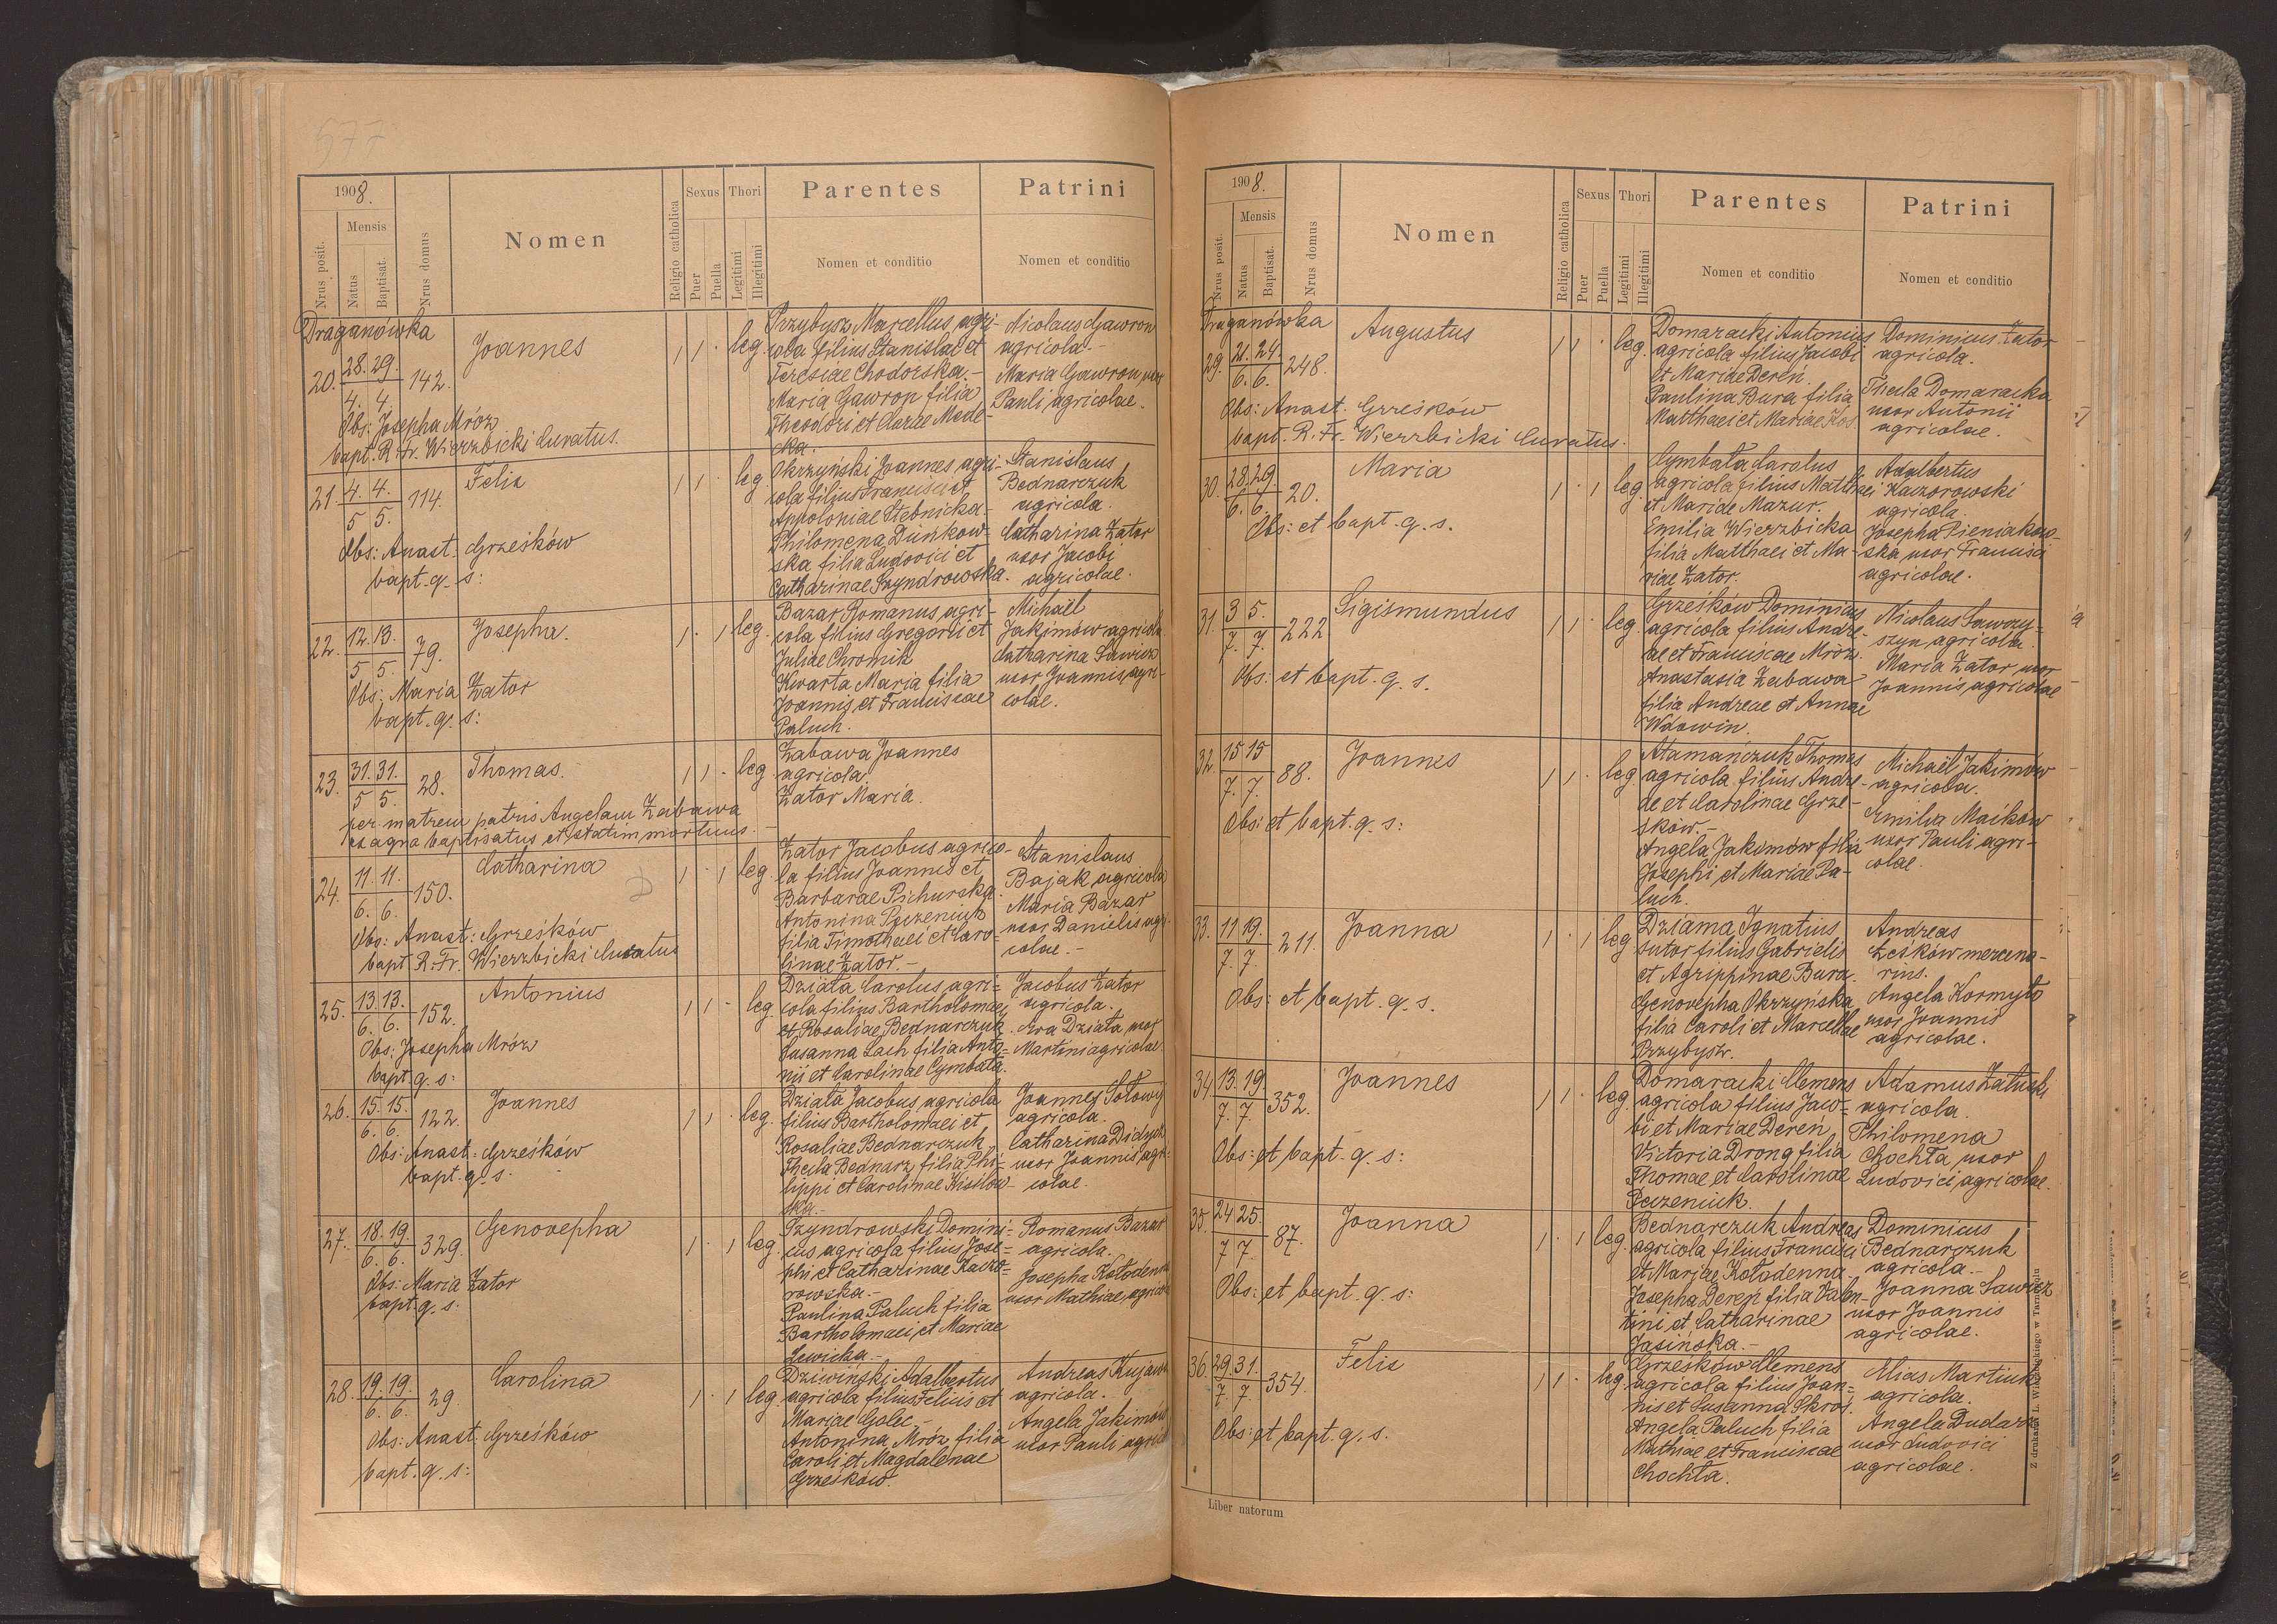 577
1908.
Nrus posit.
Mensis
Natus
Baptisat.
Nrus domus
Nomen
Religio catholica
Sexus
Puer
Puella
Thori
Legitimi
Illegitimi
Parentes
Nomen et conditio
Patrini
Nomen et conditio
Draganówka
20. 28. 29. 142. Joannes 1 1 · leg.
4. 4.
Obs: Josepha Mróz
bapt. R. Fr. Wierzbicki Curatus.
Przybysz Marcellus agri-
cola filius Stanislai et
Teresiae Chodorska.-
Maria Gawron filia
Theodori et Clarae Mede-
cka.
Nicolaus Gawron
agricola.-
Maria Gawron uxor
Pauli agricolae.
21 4. 4. 114. Felix 1 1 · leg.
5 5.
Obs: Anast: Grześków
bapt. q. s:
Okrzyński Joannes agri-
cola filius Francisci et
Appoloniae Stebnicka-
Philomena Dunkow-
ska filia Ludovici et
Catharinae Szyndrowska.
Stanislaus
Bednarczuk
agricola.
Catharina Zator
uxor Jacobi
agricolae.
22. 12. 13. 79. Josepha. 1 · 1 leg.
5 5.
Obs: Maria Zator
bapt. q. s:
Bazar Romanus agri-
cola filius Gregorii et
Juliae Chromik
Kwarta Maria filia
Joannis et Franciscae
Paluch.
Michaël
Jakimów agricola
Catharina Sawicz
uxor Joannis agri-
colae.
23. 31. 31. 28. Thomas. 1 1 · leg
5 5.
per matrem patris Angelam Zabawa
ex aqra baptisatus et statim mortuus.
Zabawa Joannes
agricola.
Zator Maria.
24. 11. 11. 150. Catharina 1 · 1 leg
6. 6.
Obs: Anast: Grześków
bapt R. Fr. Wierzbicki Curatus
Zator Jacobus agrico-
la filius Joannis et
Barbarae Pichurska.
Antonina Peczeniuk
filia Timothaei et Caro-
linae Zator.-
Stanislaus
Bajak agricola
Maria Bazar
uxor Danielis agri-
colae.-
25. 13. 13. 152. Antonius 1 1 - leg.
6. 6.
Obs: Josepha Mróz
bapt. q. s:
Dziáta Carolus agri-
cola filius Bartholomaei
et Rosaliae Bednarczuk
Susanna Lach filia Anto-
nii et Carolinae Cymbáta.
Jacobus Zator
agricola.
Eva Dziáta uxor
Martini agricolae.
26. 15. 15. 122. Joannes 1 1 · leg.
6. 6.
Obs: Anast: Grześków
bapt. q. s.
Dziáta Jacobus agricola
filius Bartholomaei et
Rosaliae Bednarczuk
Thecla Bednarz filia Phi-
lippi et Carolinae Kisilow-
ska.-
Joannes Sotowij
agricola.
Catharina Didych
uxor Joannis agri-
colae.
27. 18. 19. 329. Genovepha 1 · 1 leg.
6. 6.
Obs: Maria Zator
bapt. q. s:
Szyndrowski Domini-
cus agricola filius Jose-
phi et Catharinae Kaczo-
rowska.-
Paulina Paluch filia
Bartholomaei et Mariae
Lewicka.-
Romanus Bazar
agricola.
Josepha Kotodenna
uxor Mathiae agricolae
28. 19. 19. 29. Carolina 1 · 1 leg.
6. 6.
Obs: Anast. Grześków
bapt. q. s:
Dziwiński Adalbertus
agricola filius Felicis et
Mariae Golec.-
Antonina Mróz filia
Caroli et Magdalenae
Grześków.
Andreas Kujawa
agricola.
Angela Jakimów
uxor Pauli agricol
1908.
Nrus posit.
Mensis
Natus
Baptisat.
Nrus domus
Nomen
Religio catholica
Sexus
Puer
Puella
Thori
Legitimi
Illegitimi
Parentes
Nomen et conditio
Patrini
Nomen et conditio
Draganówka
29. 21. 24. 248. Augustus 1 1 · leg.
6. 6.
Obs: Anast. Grześków
bapt. R. Fr. Wierzbicki Curatus.
Domaracki Antonius
agricola filius Jacobi
et Mariae Dereń.
Paulina Bura filia
Matthaei et Mariae Kos.
Dominicus Zator
agricola.
Thecla Domaracka
uxor Antonii
agricolae.
30. 28. 29. 20. Maria 1 · 1 leg
6. 6.
Obs: et bapt. q. s.
Cymbáta Carolus
agricola filius Matthaei
et Mariae Mazur.
Emilia Wierzbicka
filia Matthaei et Ma-
riae Zator.
Adalbertus
Kaczorowski
agricola.
Josepha Pieniakow-
ska uxor Francisci
agricolae.
31. 3 5. 222 Sigismundus 1 1 · leg.
7. 7.
Obs: et bapt. q. s.
Grześków Dominicus
agricola filius Andre-
ae et Franciscae Mróz.
Anastasia Zabawa
filia Andreae et Annae
Wdowin.
Nicolaus Ławry-
szyn agricola.
Maria Zator uxor
Joannis agricolae
32. 15 15 88. Joannes 1 1 · leg
7. 7.
Obs: et bapt. q. s:
Atamańczuk Thomas
agricola filius Andre-
ae et Carolinae Grze-
śków.-
Angela Jakimów filia
Josephi et Mariae Pa-
luch.
Michaël Jakimów
agricola.
Emilia Maików
uxor Pauli agri-
colae.
33. 11 19. 211. Joanna 1 · 1 leg
7. 7.
Obs: et bapt. q. s.
Dziama Ignatius
sutor filius Gabrielis
et Agrippinae Bura.
Genovepha Okrzyńska
filia Caroli et Marcellae
Przybysz.
Andreas
Leśków mercena-
rius.
Angela Kormyto
uxor Joannis
agricolae.
34 13. 19. 352. Joannes 1 1 · leg.
7. 7.
Obs: et bapt. q. s:
Domaracki Clemens
agricola filius Jaco-
bi et Mariae Dereń
Victoria Drong filia
Thomae et Carolinae
Peczeniuk.
Adamus Zatuski
agricola.
Philomena
Chochta uxor
Ludovici agricolae.
35. 24 25. 87. Joanna 1 · 1 leg.
7 7.
Obs: et bapt. q. s:
Bednarczuk Andreas
agricola filius Francisci
et Mariae Kotodenna
Josepha Dereń filia Valen-
tini et Catharinae
Jasińska.-
Dominicus
Bednarczuk
agricola.-
Joanna Sawicz
uxor Joannis
agricolae.
36. 29. 31. 354. Felix 1 1 · leg.
7 7.
Obs: et bapt. q. s.
Grześków Clemens
agricola filius Joan-
nis et Susanna Skrój.
Angela Paluch filia
Mathiae et Franciscae
Chochta.
Elias Martiuk
agricola.
Angela Dudarz
uxor Ludovici
agricolae.
Liber natorum